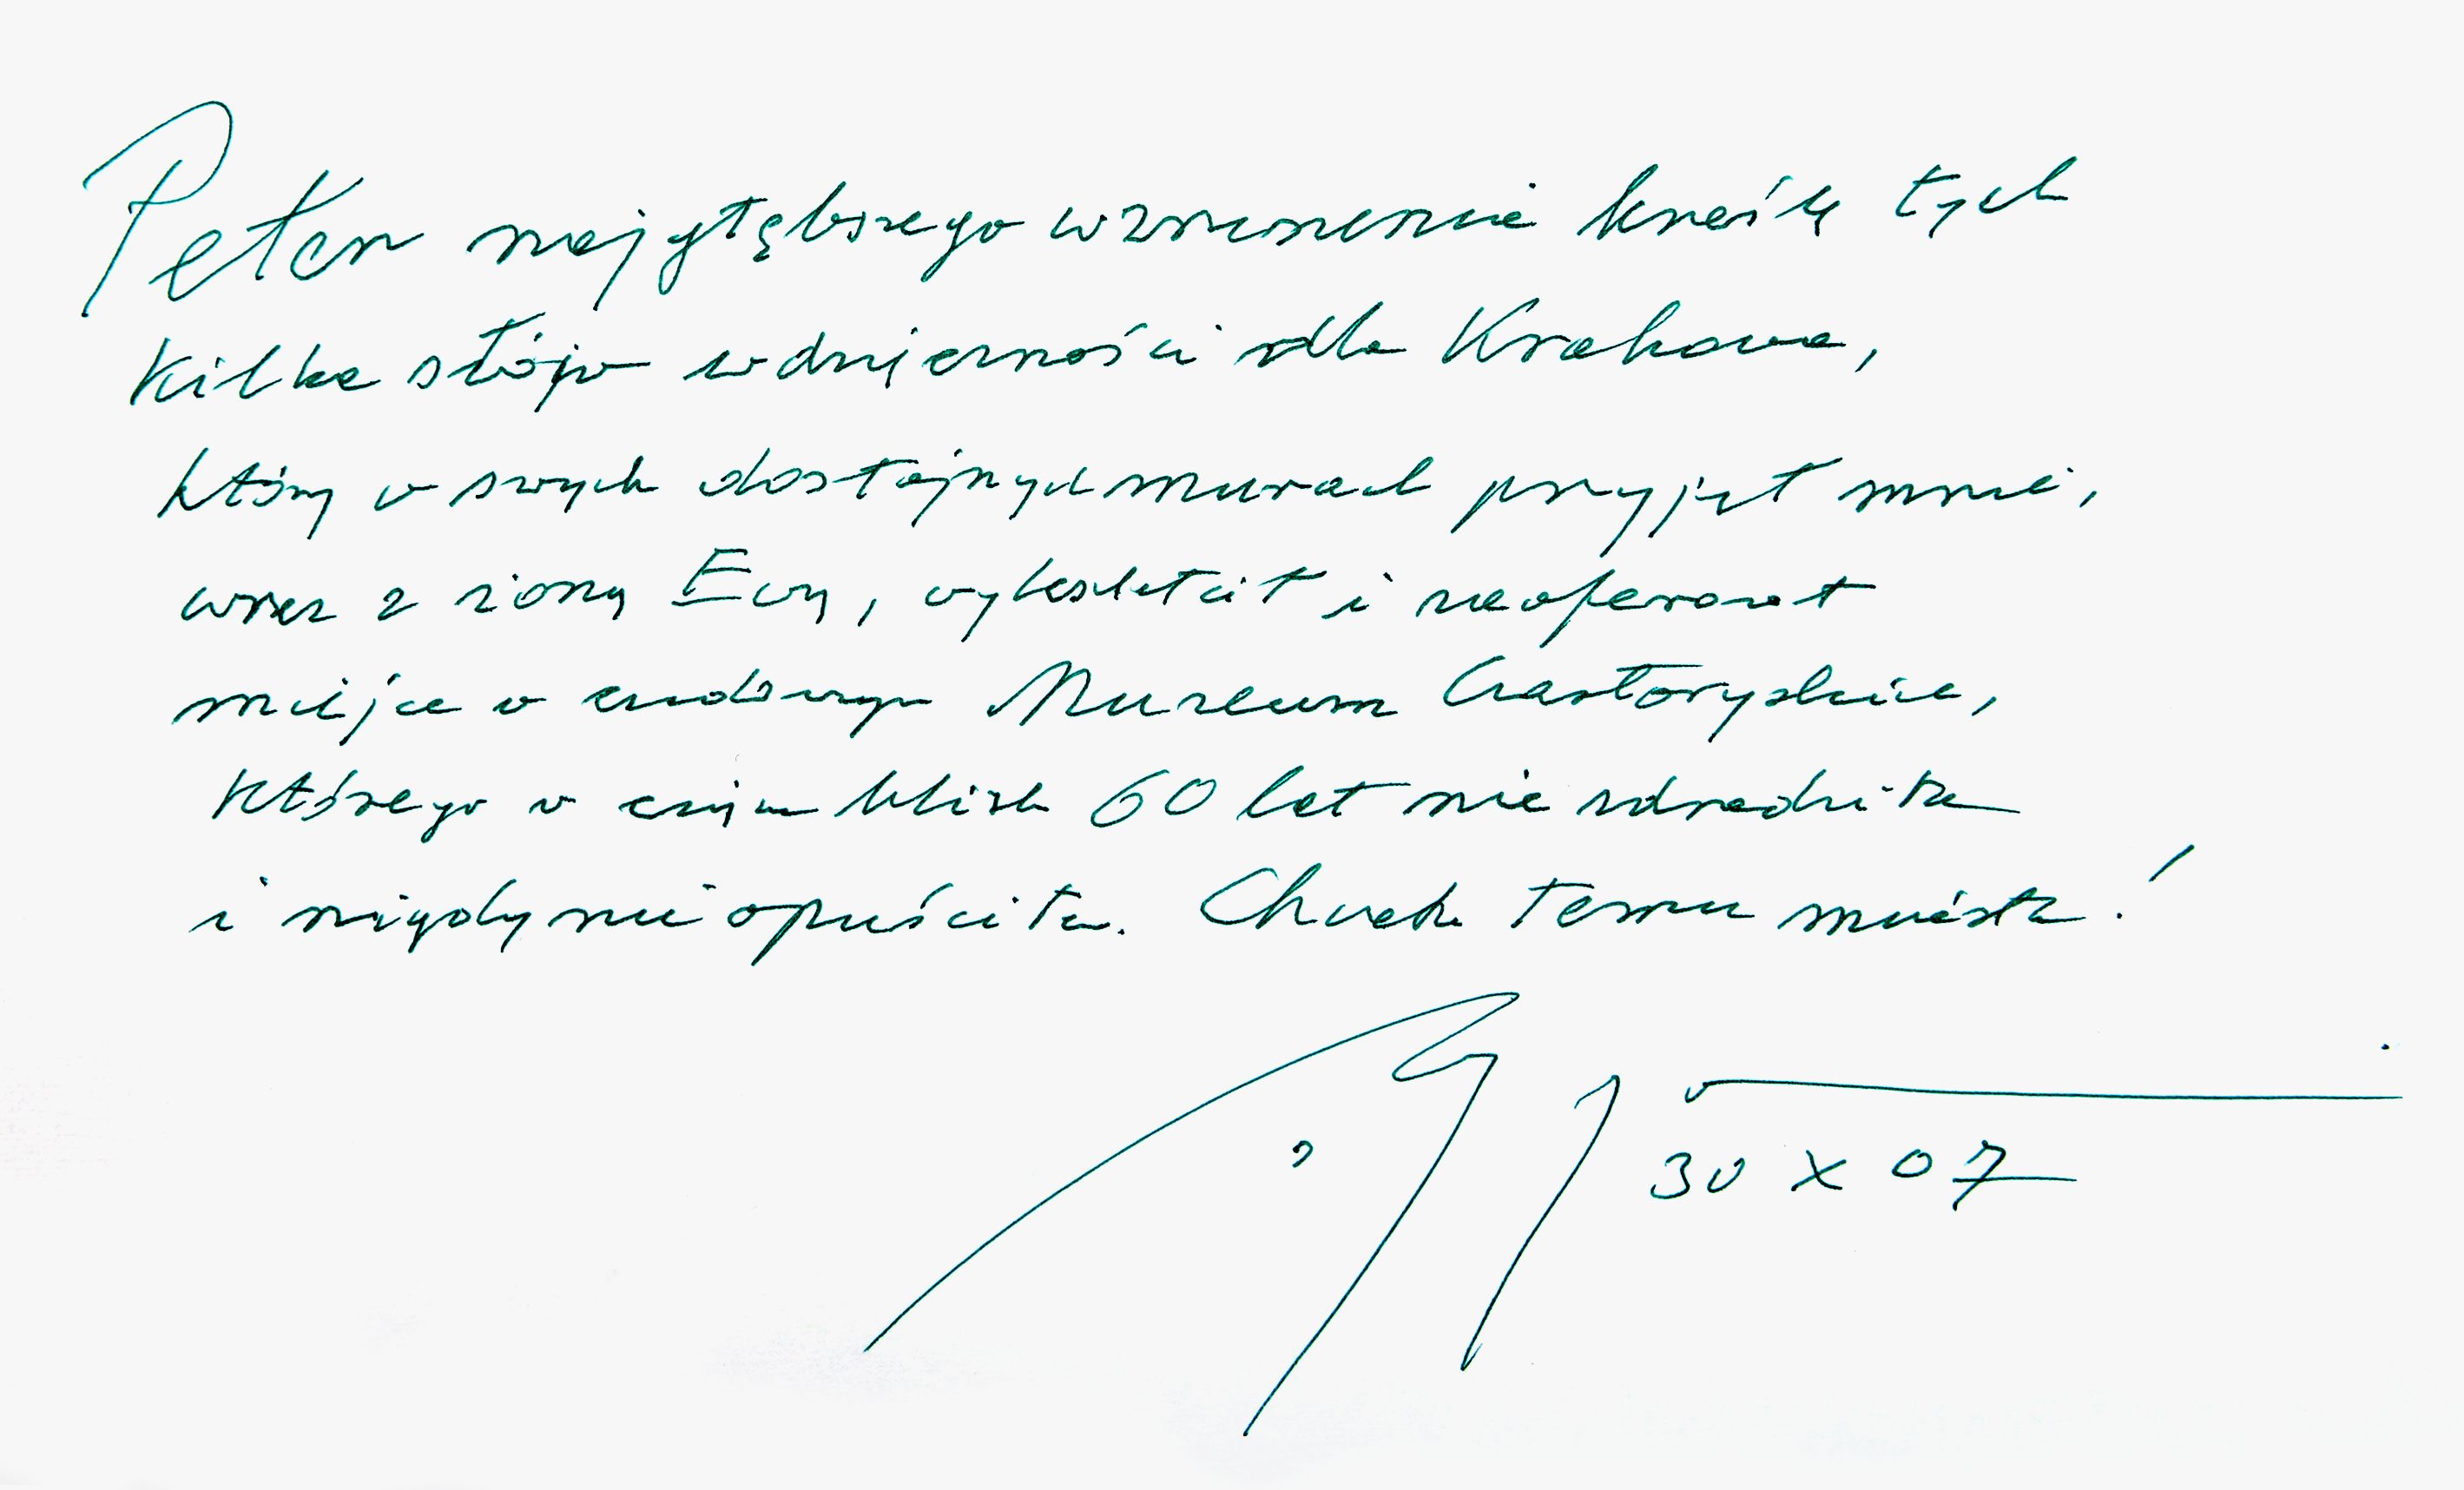 Pełen najgłębszego wzruszenia kreślę tych
kilka słów wdzięczności dla Krakowa,
który w swych dostojnych murach przyjął mnie,
wraz z żoną Ewą, wykształcił i zaoferował
miejsce w cudownym Muzeum Czartoryskich,
którego w ciągu blisko 60 lat nie zdradziłem
i nigdy nie opuściłem. Chwała temu miastu!
30 X 07